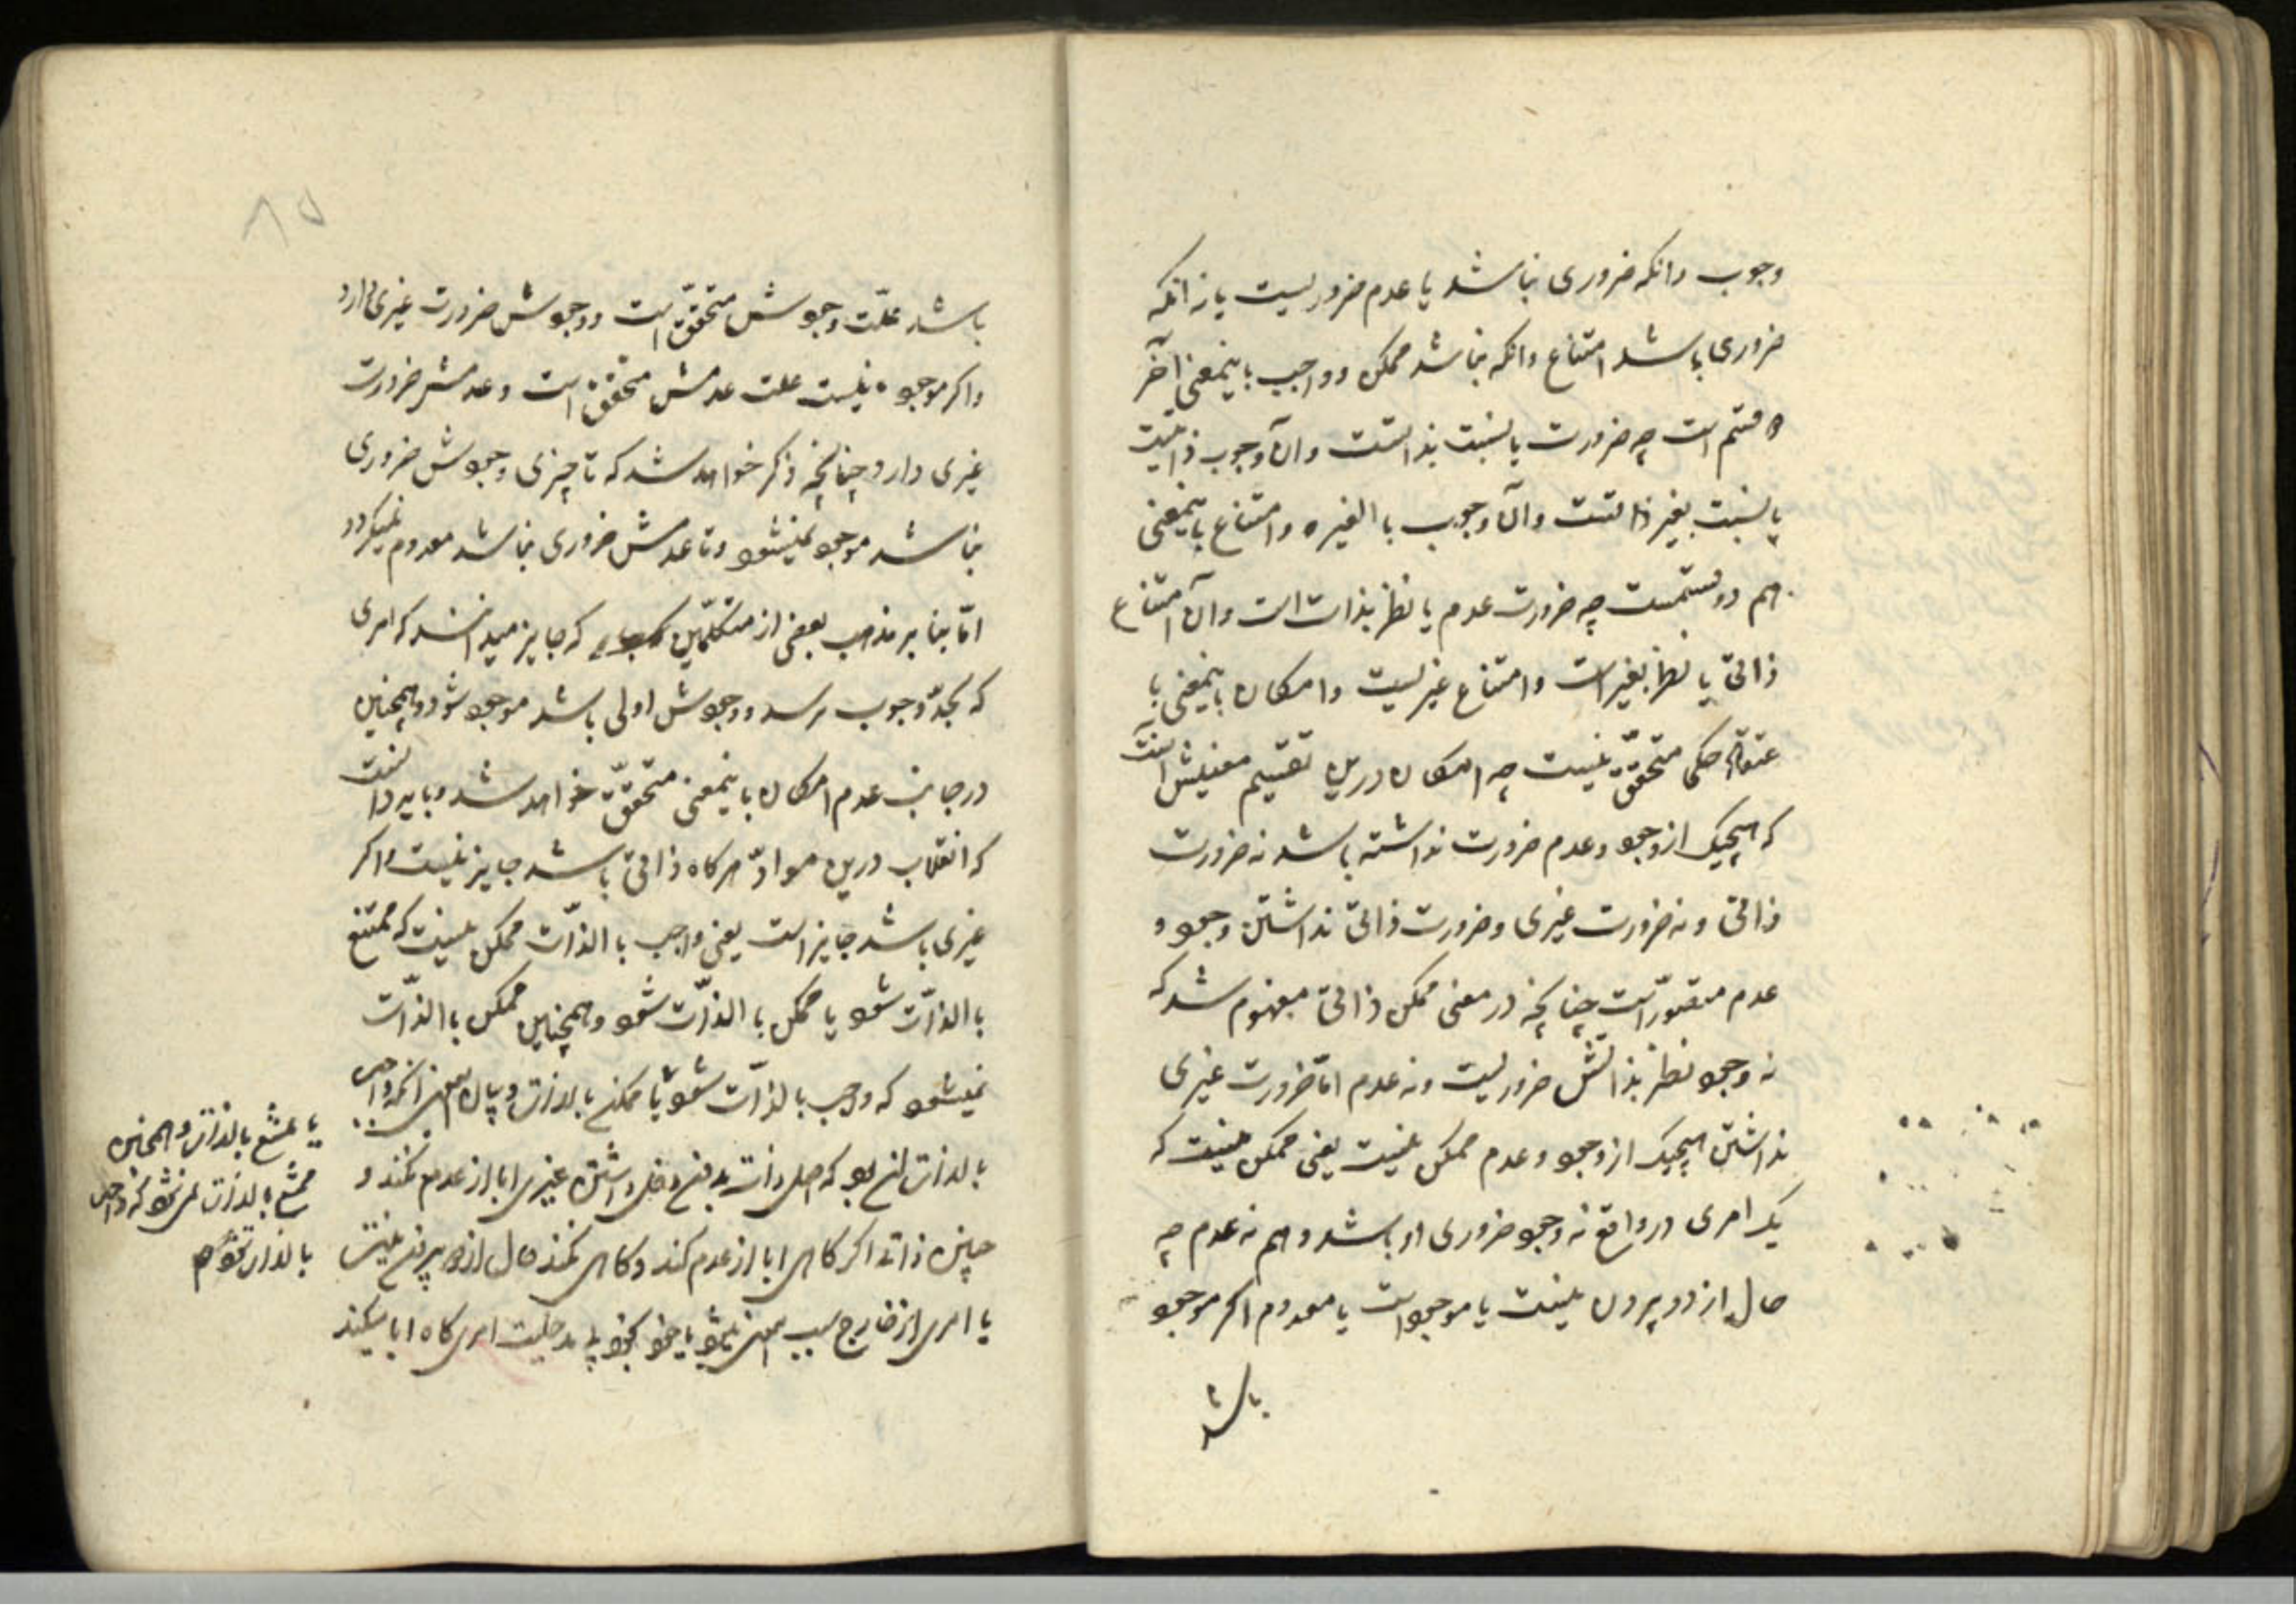 وجوب و انکه ضروری نباشد یا عدم ضروریست یا نه انکه
ضروری باشد امتناع و انکه نباشد ممکن و واجب باینمعنی آخر
دو قسم است چه ضرورت یا بنسبت بذاتست و ان وجوب ذاتیست
یا بنسبت بغیر ذاتست و آن وجوب با الغیر و امتناع باینمعنی
هم دو قسمست چه ضرورت عدم یا نظر بذات است و آن امتناع
ذاتی یا نظر بغیر است و امتناع غیریست و امکان باینمعنی با
عتقاد حکما متحقق نیست چه امکان درین تقسیم معنیش انست
که هیچیک از وجود و عدم ضرورت نداشته باشد نه ضرورت
ذاتی و نه ضرورت غیری و ضرورت ذاتی نداشتن وجود و
عدم متصور است چنانچه در معنی ممکن ذاتی مفهوم شد که
نه وجود نظر بذاتش ضروریست و نه عدم امّا ضرورت غیری
نداشتن هیچیک از وجود و عدم ممکن نیست یعنی ممکن نیست که
یک امری در واقع نه وجود ضروری او باشد و هم نه عدم چه
حال از دو بیرون نیست یا موجود است یا معدوم اگر موجود
باشد
۸۵
باشد علّت وجودش متحقّق است و وجودش ضرورت غیری دارد
و اکر موجود نیست علت عدمش متحقق است و عدمش ضرورت
غیری دارد چنانچه ذکر خواهد شد که تا چیزی وجودش ضروری
نباشد موجود نمیشود و تا عدمش ضروری نباشد معدوم نمیکردد
امّا بنا بر مذهب بعضی از متکلّمین که جایز میدانند که امری
که بحدّ وجوب نرسد و وجودش اولی باشد موجود شود و همچنین
در جانب عدم امکان باینمعنی متحقّق خواهد شد و باید دانست
که انقلاب درین موادّ هرکاه ذاتی باشد جایز نیست و اکر
غیری باشد جایز است یعنی واجب با الذّات ممکن نیست که ممتنع
با الذّات شود یا ممکن با الذّات شود و همچنین ممکن با الذّات
نمیشود که واجب بالذّات شود یا ممتنع بالذات و بیان این معنی انکه واجب
بالذات ان بود که اصل ذات بدون دخل داشتن غیری ابا از عدم کند و
چنین ذاتی اکر کاهی ابا از عدم کند و کاهی نکند حال از دو بیرون نیست
یا امری از خارج سبب این میشود یا خود بخود بی مدخلیت امری کاه ابا میکند
یا ممتنع بالذات و همچنین
ممتنع بالذات نمی شود که واجب
بالذات شود